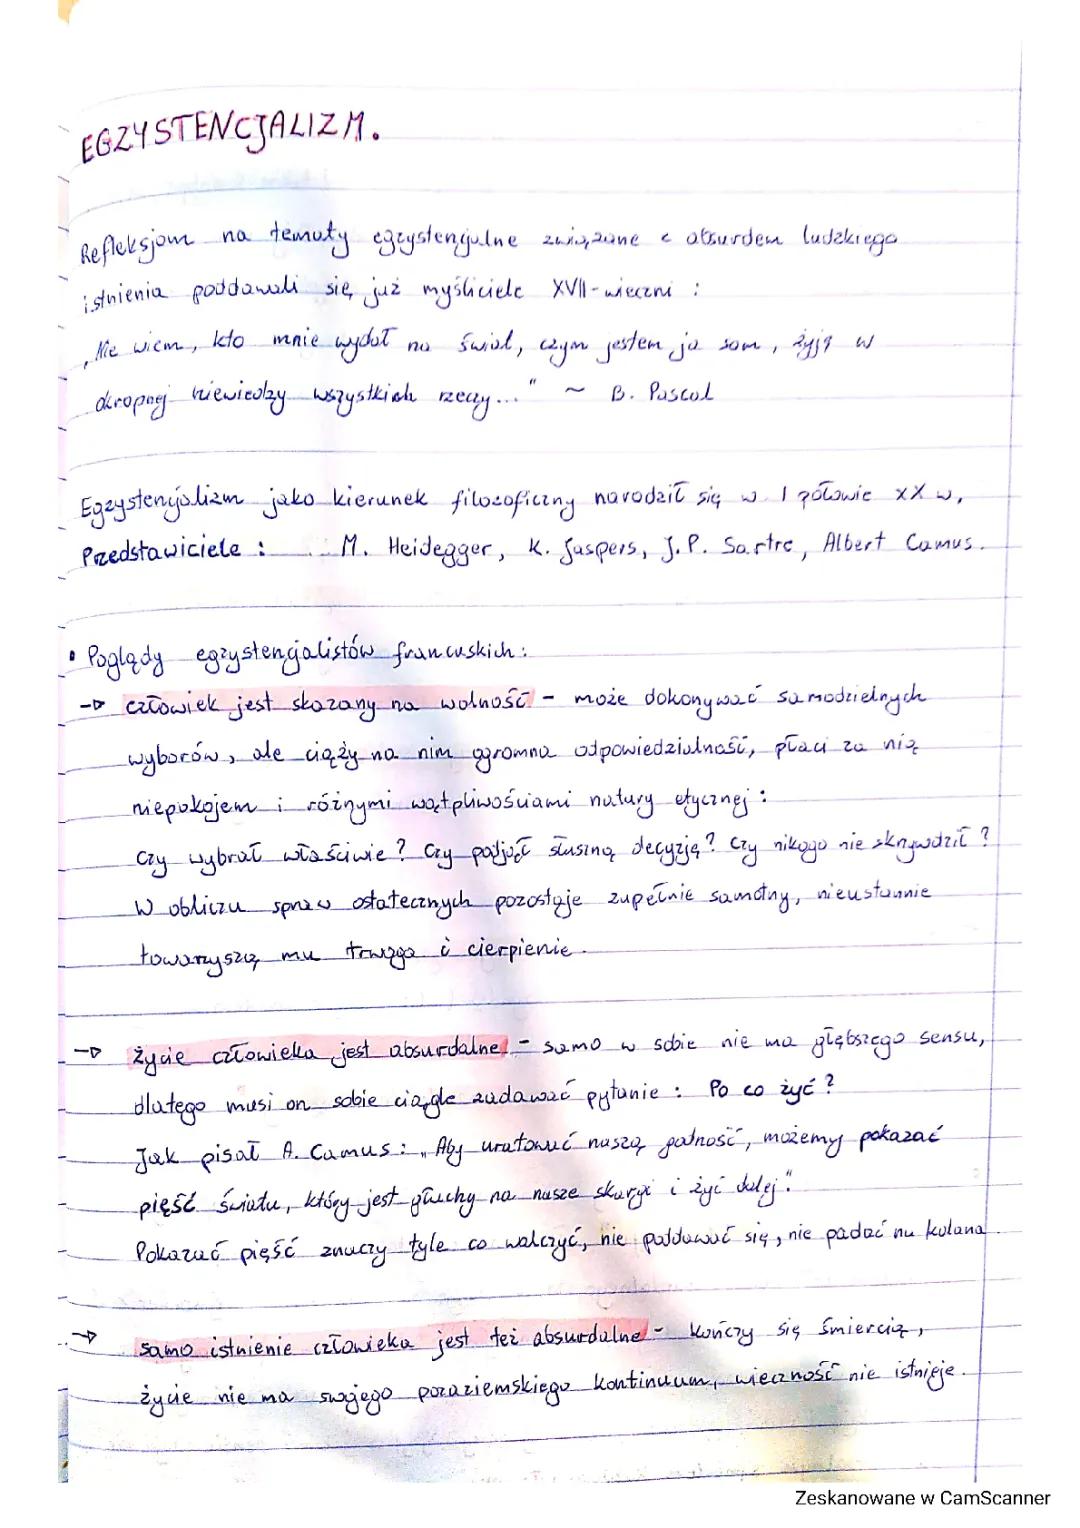 EGZYSTENCJALIZM.
Refleksjom na tematy egzystencjalne związane z absurdem ludzkiego
istnienia poddawali się już myśliciele XVII-wieczni :
„Nie wiem, kto mnie wydał na świat, czym jestem ja sam, żyję w
okropnej niewiedzy wszystkich rzeczy..." ~ B. Pascal
Egzystencjalizm jako kierunek filozoficzny narodził się w I połowie XX w.
Przedstawiciele : M. Heidegger, K. Jaspers, J.P. Sartre, Albert Camus.
• Poglądy egzystencjalistów francuskich:
→ człowiek jest skazany na wolność - może dokonywać samodzielnych
wyborów, ale ciąży na nim ogromna odpowiedzialność, płaci za nią
niepokojem i różnymi wątpliwościami natury etycznej :
Czy wybrał właściwie? Czy podjął słuszną decyzję? Czy nikogo nie skrzywdził?
W obliczu spraw ostatecznych pozostaje zupełnie samotny, nieustannie
towarzyszą mu trwoga i cierpienie.
→ życie człowieka jest absurdalne - samo w sobie nie ma głębszego sensu,
dlatego musi on sobie ciągle zadawać pytanie : Po co żyć?
Jak pisał A. Camus: „Aby uratować naszą godność, możemy pokazać
pięść światu, który jest głuchy na nasze skargi i żyć dalej."
Pokazać pięść znaczy tyle co walczyć, nie poddawać się, nie padać na kolana.
→ samo istnienie człowieka jest też absurdalne - kończy się śmiercią,
życie nie ma swojego pozaziemskiego kontinuum, wieczność nie istnieje.
Zeskanowane w CamScanner